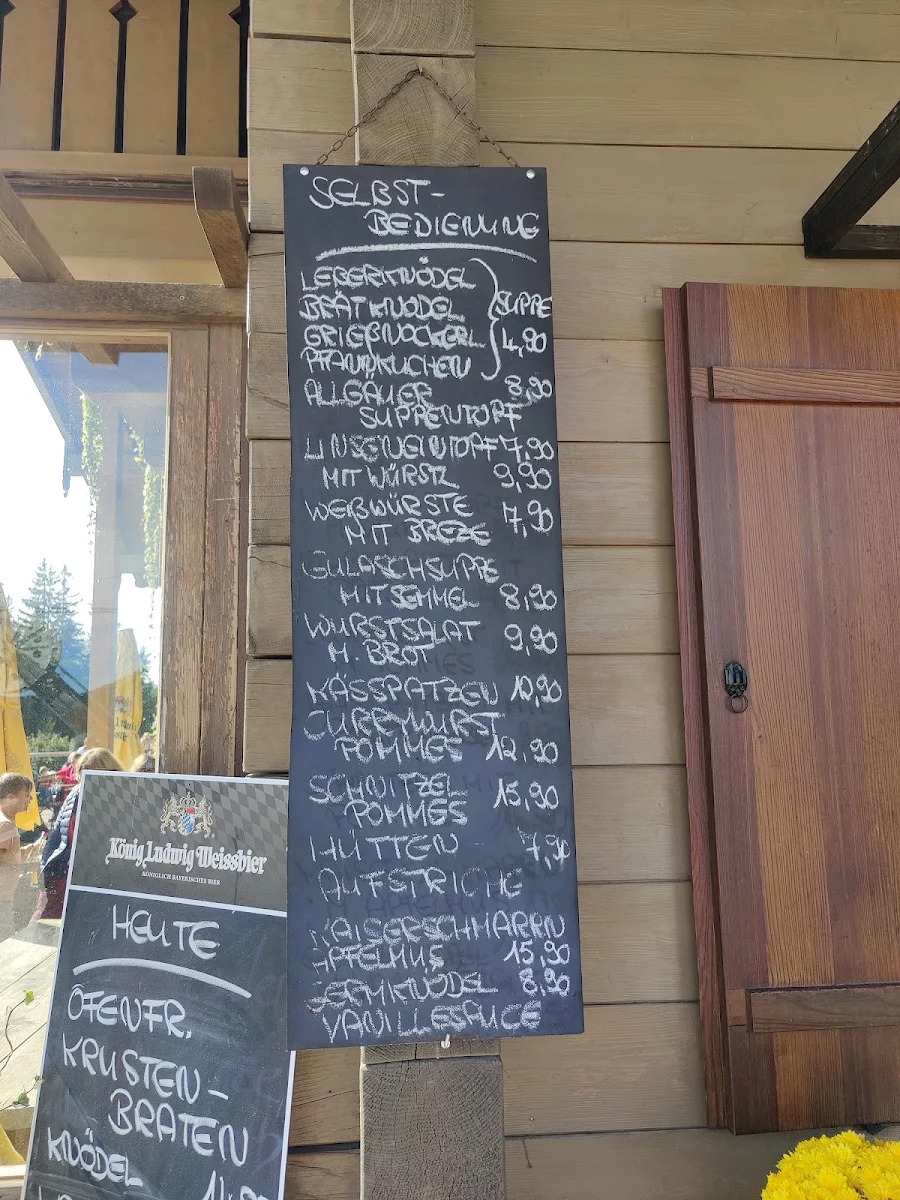 SELBST-
BEDIENUNG
LEBERKNÖDEL
BRÄTKNÖDEL
GRIEßNOCKERL
PFANNKUCHEN
SUPPE
4,90
ALLGÄUER 8,90
SUPPENTOPF
LINSENEINTOPF 7,90
MIT WÜRSTL 9,90
WEIßWÜRSTE
MIT BREZE 7,90
GULASCHSUPPE
MIT SEMMEL 8,90
WURSTSALAT
M. BROT 9,90
KÄSSPATZEN 10,90
CURRYWURST
POMMES 12,90
SCHNITZEL
POMMES 15,90
HÜTTEN 7,90
AUFSTRICHE
KAISERSCHMARRN
APFELMUS 15,90
GERMKNÖDEL 8,90
VANILLESAUCE
König Ludwig Weissbier
KÖNIGLICH BAYERISCHES BIER
HEUTE
OFENFR.
KRUSTEN-
BRATEN
KNÖDEL